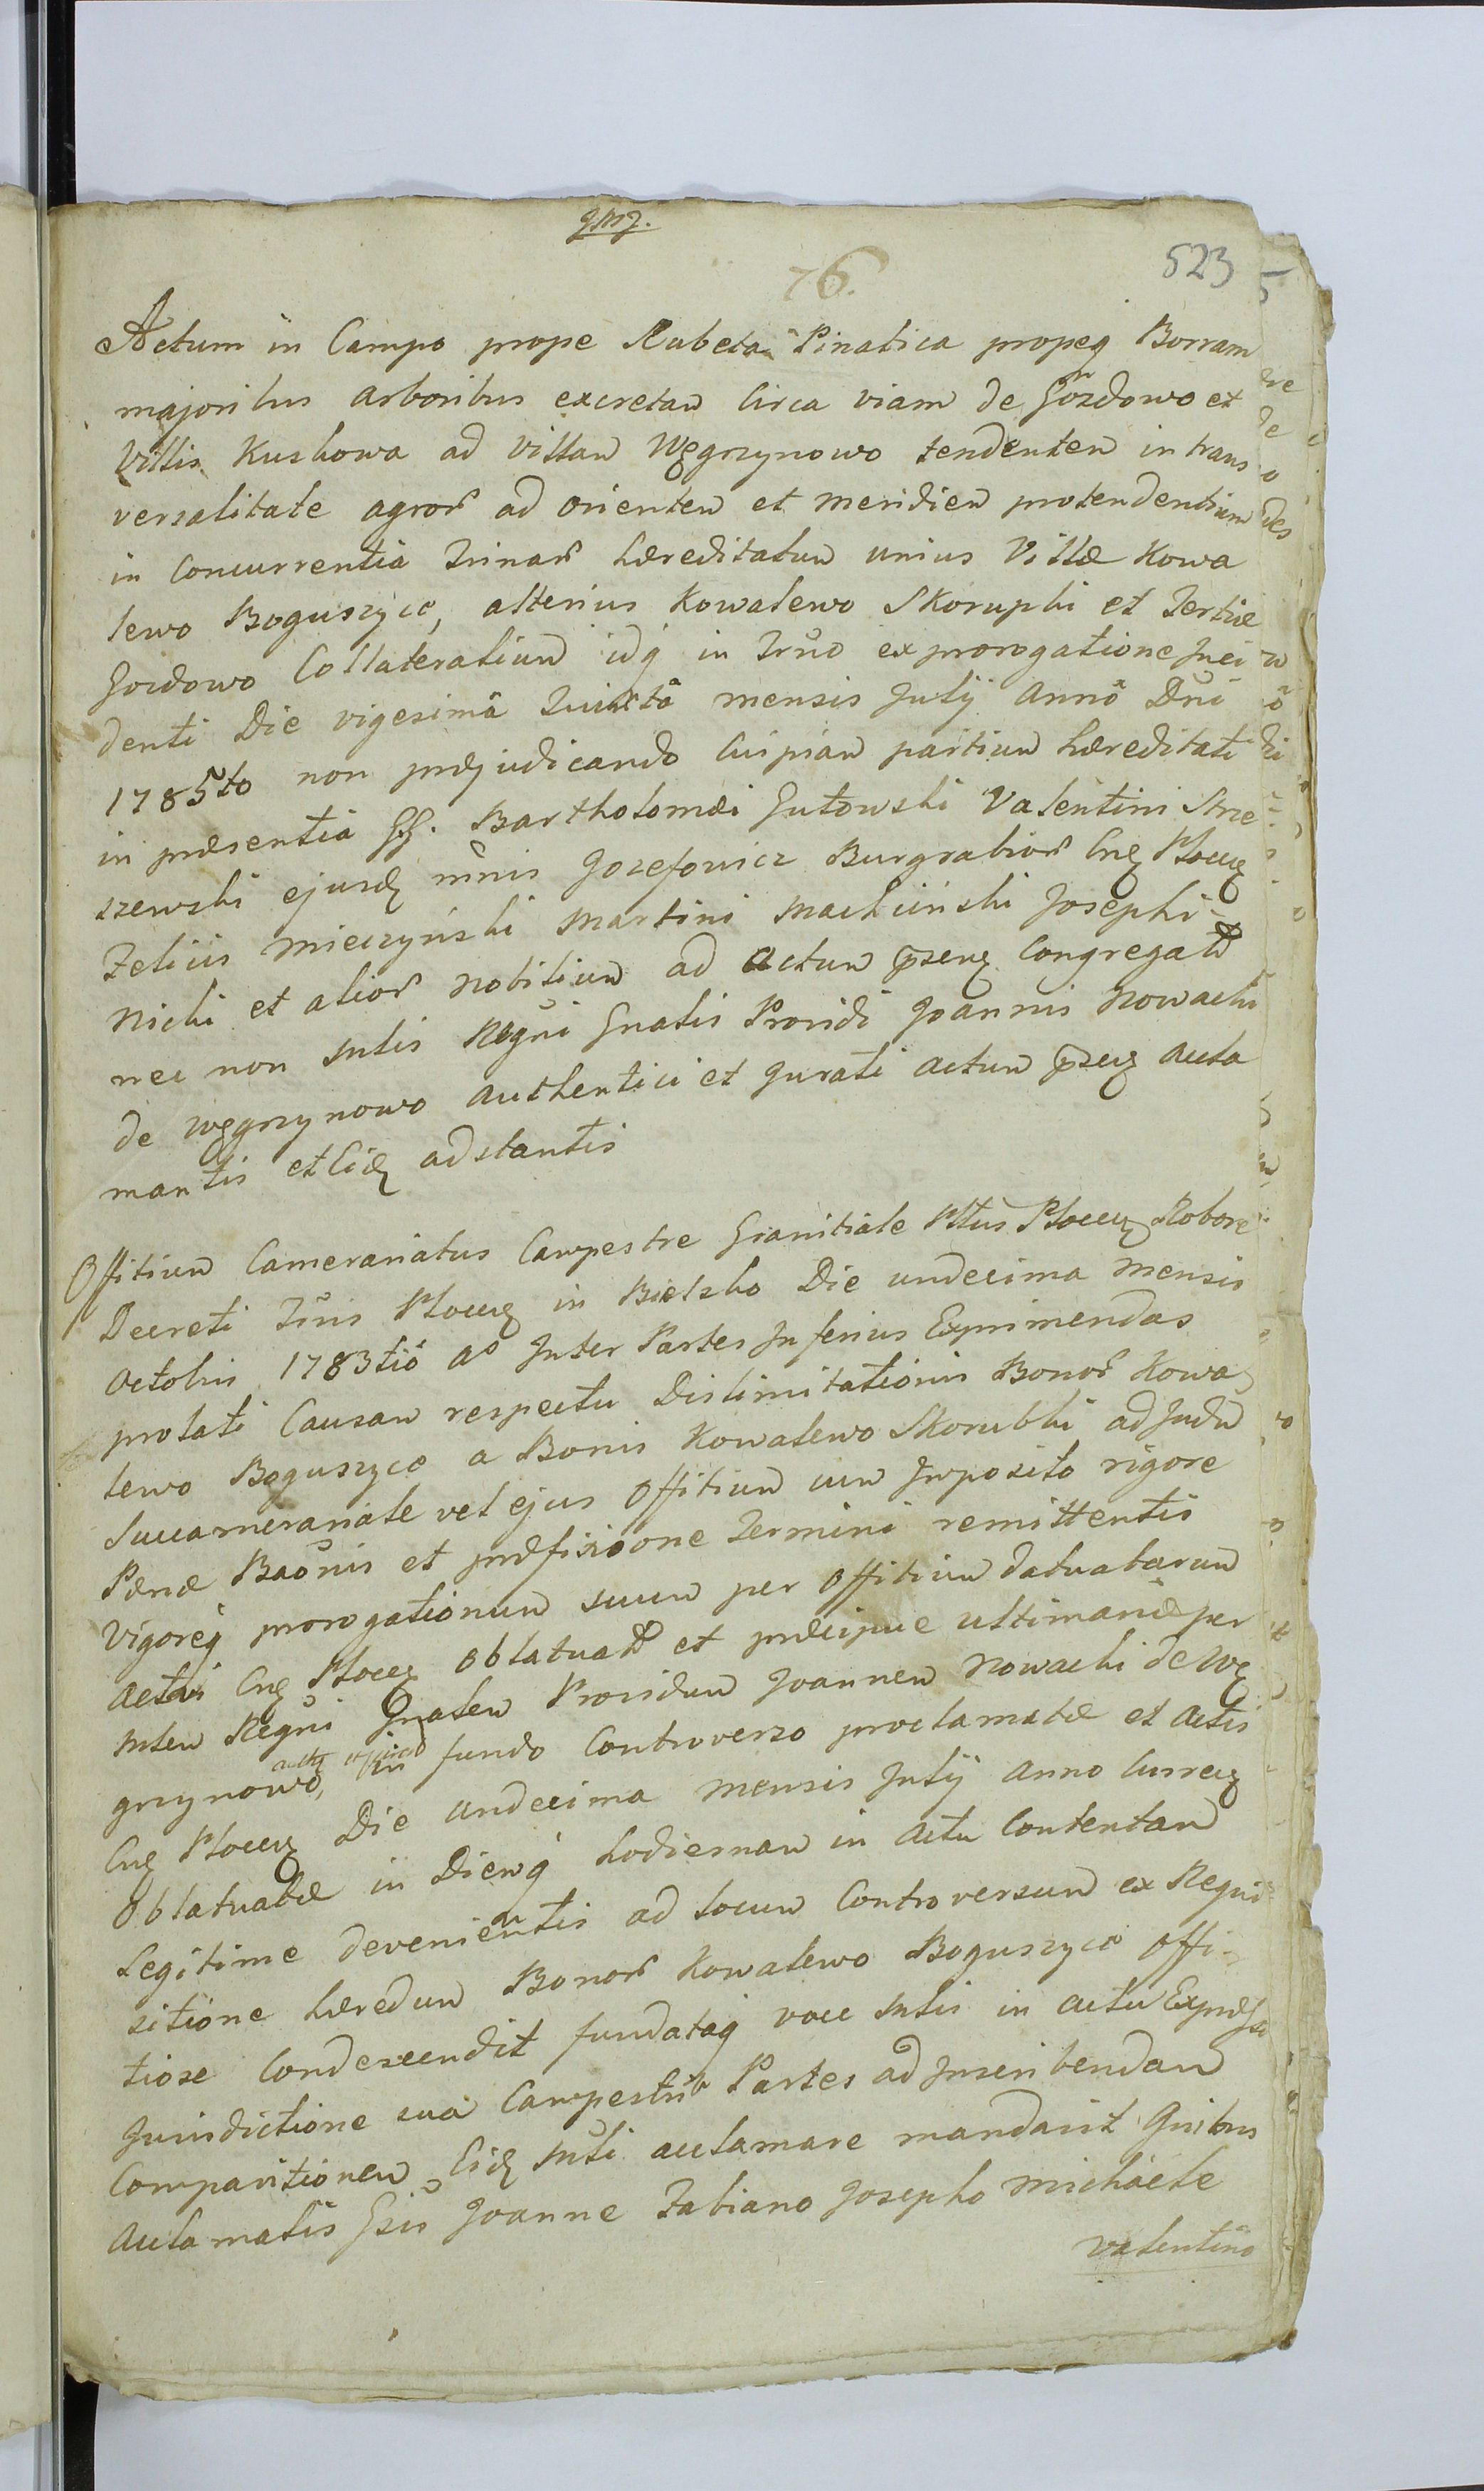 76.
523
Actum in Campo prope Rubeta Pinatica propeq Borram
majoribus arboribus excretam Circa viam de Gozdowo et
Villis Kuskowa ad villam Węgrzynowo tendentem in trans
versalitate agror ad orientem et meridiem protendentium
in Concurrentia Trinar hæreditatum unius Villæ Kowa
lewo Boguszyce, alterius Kowalewo Skorupki et Tertiæ
Gozdowo Collateralium idq in Trno ex prorogatione Inci
denti Die vigesimâ Quintâ mensis Julÿ Anno Dni
1785to non præjudicando Cuipiam partium hæreditati
in præsentia GG. Bartholomæi Gutowski Valentini Strze
szewski ejusd nnis Jozefowicz Burgrabior Cne Plocen
Felicis Mierzyński Martini Machciński Josephi
Nicki et alior Nobilium ad Actum przen Congregator
nec non Mlis Regni Gnalis Providi Joannis Nowacki
de Węgrzynowo Authentici et Jurati actum przen accla
mantis et Eid adstantis
Offitium Camerariatus Campestre Granitiale Pttus Plocen Robore
Decreti Tris Plocen in Bielsko Die undecima Mensis
Octobris 1783tio Ao Inter Partes Inferius Exprimendas
prolati Causam respectu Dislimitationis Bonor Kowa
lewo Boguszyce a Bonis Kowalewo Skorubki ad Judm
Succamerariale vel ejus Offitium cum Imposito rigore
Pænæ Baonis et præfixione Termini remittentis
Vigoreq prorogationum suum per Offitium datuatarum
Actis Cne Plocen Oblatuatar et præcipue ultimariæ per
Mlem Regni Gnalem Providum Joannem Nowacki de Wę
grzynowo, in fundo Controverso proclamatæ et Actis
Cne Plocen Die undecima Mensis Julÿ Anno Curren
Oblatuatæ in Diemq hodiernam in Actu Contentam
Legitime devenientis ad locum Controversum ex Requi
sitione hæredum Bonor Kowalewo Boguszyce Offi
tiose Condescendit fundataq voce Mlis in actu Expressi
Jurisdictione sua Campestri Partes ad Inscribendam
Comparitionem Eid Mli acclamare mandavit Quibus
Acclamatis Gsis Joanne Fabiano Josepho Michaele
Valentino